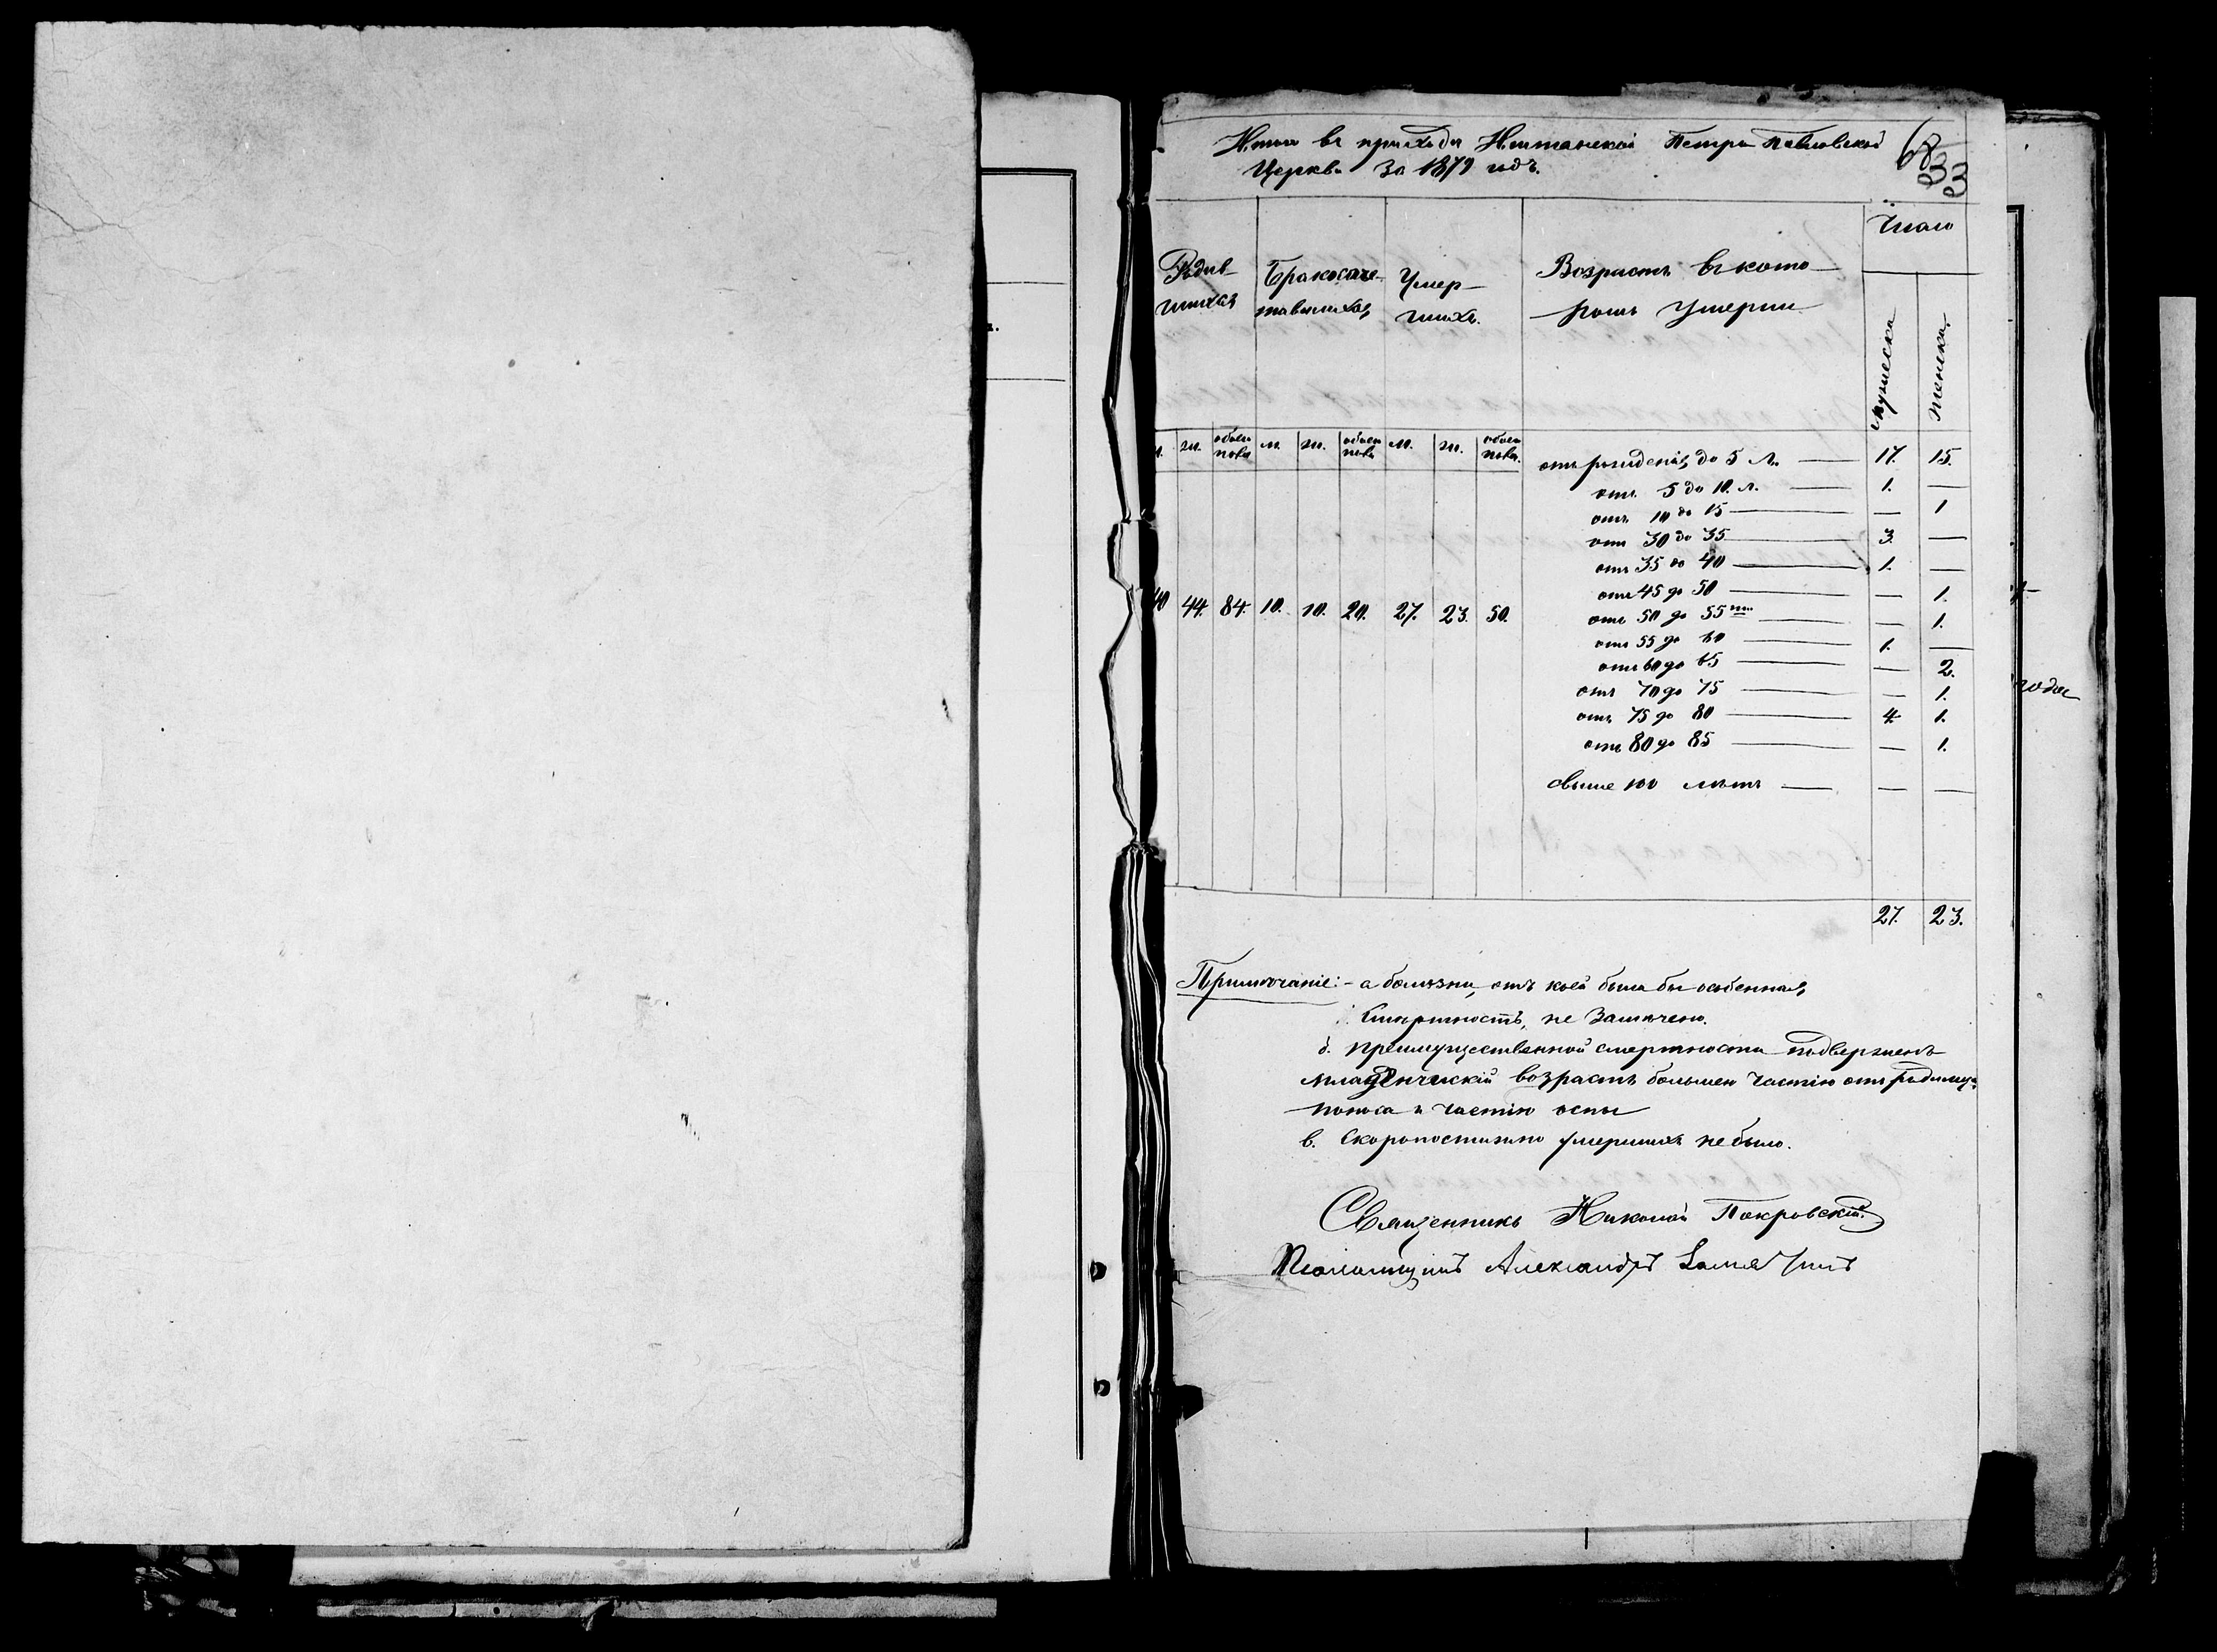 въ приходѣ Петро Павловской
Церкви за 1879 годъ.
68
33
Родив-
шихся
Бракосоче-
тавшихся
Умер-
шихъ.
Возрастъ въ кото-
ромъ умерли
Число
мужеска
женска
ж. обоего пола м. ж. обоего пола м. ж. обоего пола.
40 44. 84. 10. 10. 20. 27. 23. 50.
отъ рожденія до 5 л. — 17. 15.
отъ 5 до 10. л. — 1. —
отъ 10 до 15 — — 1
отъ 30 до 35 — 3. —
отъ 35 до 40 — 1. —
отъ 45 до 50 — — 1.
отъ 50 до 55 — — 1.
отъ 55 до 60 — 1. —
отъ 60 до 65 — — 2.
отъ 70 до 75 — — 1.
отъ 75 до 80 — 4. 1.
отъ 80 до 85 — — 1.
свыше 100 лѣтъ — — —
27. 23.
Примѣчаніе: - а болѣзни, отъ коей была бы особенная
смертность, не замѣчено.
б. преимущественной смертности подверженъ
младенческій возрастъ большею частію отъ
поноса и частію оспы
в. Скоропостижно умершихъ не было.
Священникъ Николай Покровскій.
Псаломщикъ Александръ
года